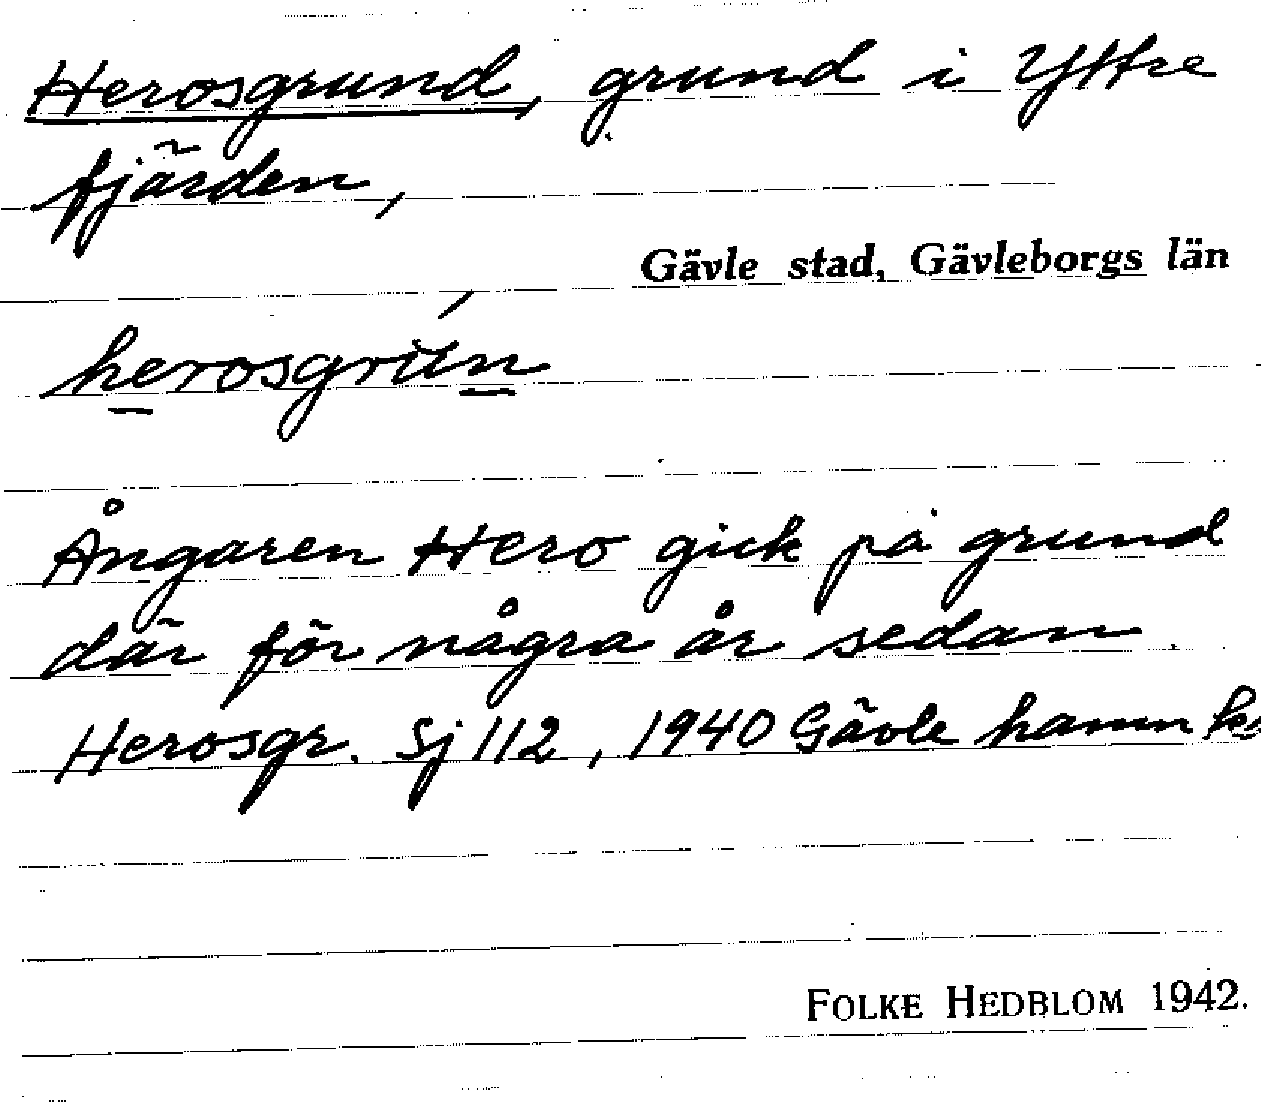 Herosgrund, grund i Yttre
fjärden,
Gävle stad, Gävleborgs län
herosgrun
Ångaren Hero gick på grund
där för några år sedan.
Herosgr. Sj 112, 1940 Gävle hamn
FOLKE HEDBLOM 1942.